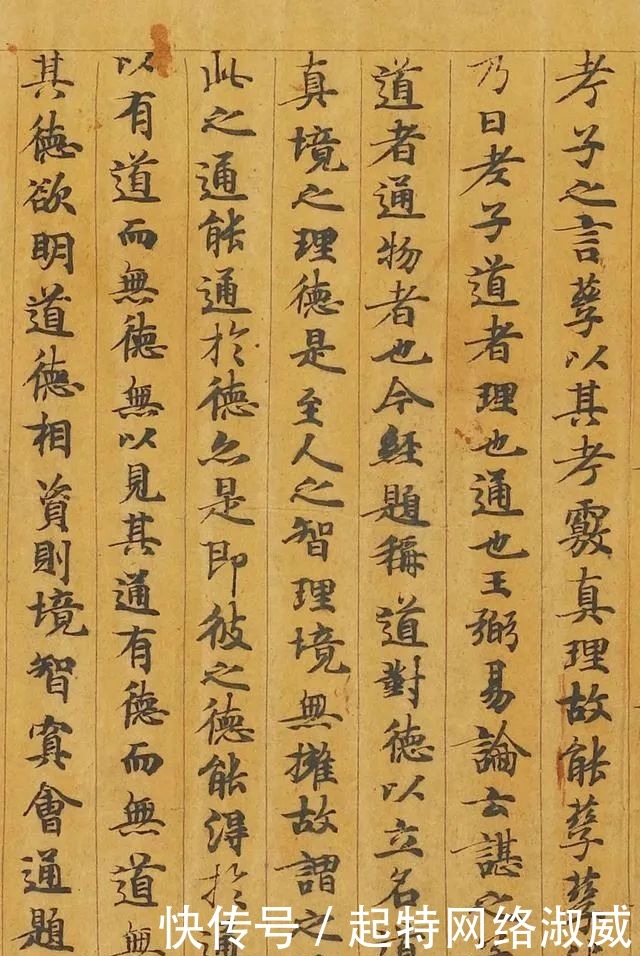 考子之言孳以其考覈真理故能孳孳
乃曰老子道者理也通也王弼易論云諶
道者通物者也今經題稱道對德以立名
真境之理德是至人之智理境無擁故謂之
此之通能通於德亦是即彼之德能得於通
以有道而無德無以見其通有德而無道無
其德欲明道德相資則境智冥會通題
快传号 / 起特网络淑威